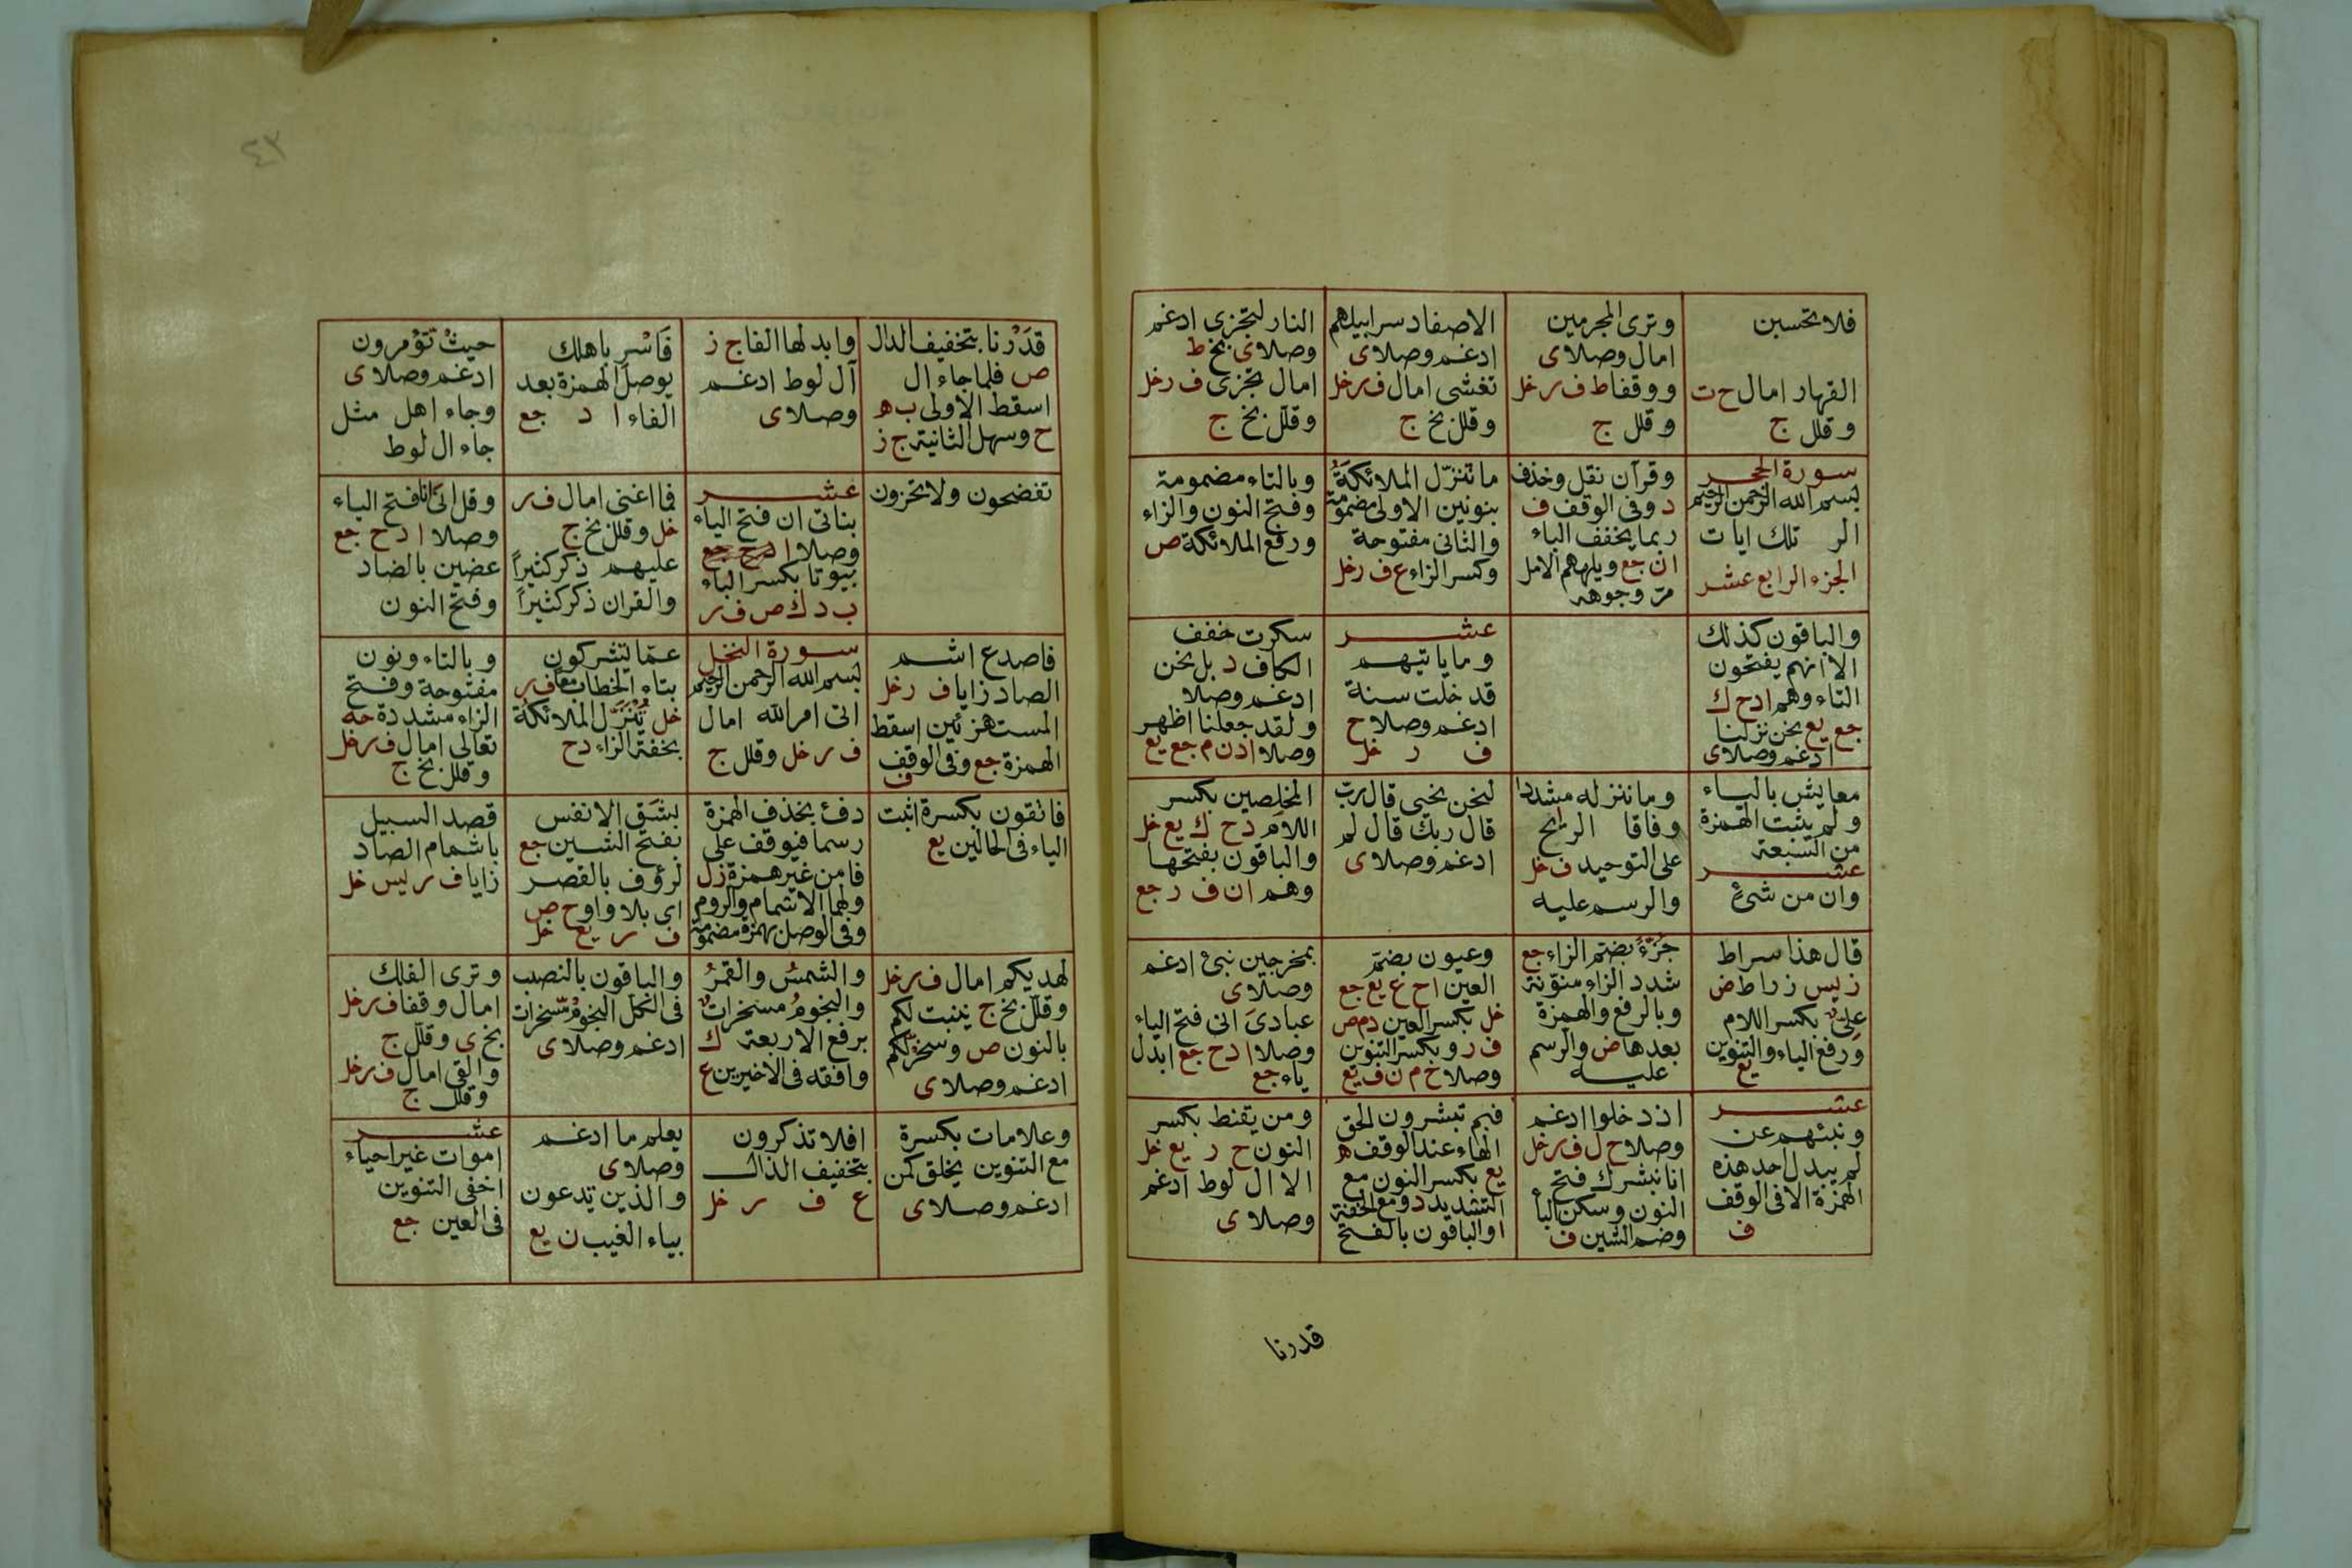 فلا تحسبن
القهار امال ح ت
وقلل ج
وترى المجرمين
امال وصلا ى
ووقفا ط ف ر خل
وقلل ج
الاصفاد سرابيلهم
ادغم وصلا ى
تغشى امال ف ر خل
وقلل بخ ج
النار لتجزى ادغم
وصلا ى بخ ط
امال تجزى ف ر خل
وقلل بخ ج
سورة الحجر
بسم الله الرحمن الرحيم
الر تلك ايات
الجزء الرابع عشر
وقرآن نقل وحذف
د وفى الوقف ف
ربما يخفف الباء
ان جع ويلههم الامل
مر وجوهه
ما ننزل الملائكة
بنونين الاولى مضمومة
والثانى مفتوحة
وكسر الزاء ع ف ر خل
وبالتاء مضمومة
وفتح النون والزاء
ورفع الملائكة ص
والباقون كذلك
الا انهم يفتحون
التاء وهم ا د ح ك
جع يع نحن نزلنا
ادغم وصلا ى
عشر
وما ياتيهم
قد خلت سنة
ادغم وصلا ح
ف ر خل
سكرت خفف
الكاف د بل نحن
ادغم وصلا
ولقد جعلنا اظهر
وصلا ا د ن م جع يع
معايش بالياء
ولم يثبت الهمزة
من السبعة
عشر
وان من شئ
وما ننزله مشددا
وفاقا الريح
على التوحيد ف خل
والرسم عليه
لنحن نحيى قال رب
قال ربك قال لم
ادغم وصلا ى
المخلصين بكسر
اللام د ح ك يع خل
والباقون بفتحها
وهم ا ن ف ر جع
قال هذا سراط
ز يس ز راط ض
على بكسر اللام
ورفع الياء والتنوين
يع
جزء بضم الزاء جع
شدد الزاء منونة
وبالرفع والهمزة
بعدها ض والرسم
عليه
وعيون بضم
العين ا ح ع يع جع
خل بكسر العين د م ص
ف ر وبكسر التنوين
وصلا ح م ن ف يع
بمخرجين نبئ ادغم
وصلا ى
عبادى انى فتح الياء
وصلا ا د ح جع ابدل
ياء جع
عشر
ونبئهم عن
لم يبدل احد هذه
الهمزة الا فى الوقف
ف
اذ دخلوا ادغم
وصلا ح ل ف ر خل
انا نبشرك فتح
النون وسكن البا
وضم الشين ف
فبم تبشرون الحق
الهاء عند الوقف ه
يع بكسر النون مع
التشديد د ومع الخفة
ا والباقون بالفتح
ومن يقنط بكسر
النون ح ر يع خل
الا ال لوط ادغم
وصلا ى
قدرنا
٤٣
قدرنا بتخفيف الدال
ص فلما جاء ال
اسقط الاولى ب ه
ح وسهل الثانية ج ز
وابدلها الفا ج ز
آل لوط ادغم
وصلا ى
فاسر باهلك
بوصل الهمزة بعد
الفاء ا د جع
حيث تؤمرون
ادغم وصلا ى
وجاء اهل مثل
جاء ال لوط
تفضحون ولا تخزون
عشر
بناتى ان فتح الياء
وصلا ا
بيوتا بكسر الباء
ب د ك ص ف ر
فما اغنى امال ف ر
خل وقلل بخ ج
عليهم ذكر كثيراً
والقران ذكر كثيراً
وقل انى انا فتح الياء
وصلا ا د ح جع
عضين بالضاد
وفتح النون
فاصدع اشم
الصاد زايا ف ر خل
المستهزئين اسقط
الهمزة جع وفى الوقف
ف
سورة النحل
بسم الله الرحمن الرحيم
اتى امر الله امال
ف ر خل وقلل ج
عما تشركون
بتاء الخطاب معا ف ر
خل تنزل الملائكة
بخفة الزاء د ح
وبالتاء ونون
مفتوحة وفتح
الزاء مشددة حه
تعالى امال ف ر خل
وقلل بخ ج
فاتقون بكسرة اثبت
الياء فى الحالين يع
دفئ بحذف الهمزة
رسما فيوقف على
فا من غير همزة ز ل
ولهما الاشمام والروم
وفى الوصل بهمزة مضمومة
بشق الانفس
بفتح الشين جع
لرؤف بالقصر
اى بلا واو ح ص
ف ر يع خل
قصد السبيل
باشمام الصاد
زايا ف ر يس خل
لهديكم امال ف ر خل
وقلل بخ ج ينبت لكم
بالنون ص وسخر لكم
ادغم وصلا ى
والشمس والقمر
والنجوم مسخرات
برفع الاربعة ك
وافقه فى الاخيرين ع
والباقون بالنصب
فى الكل النجوم مسخرات
ادغم وصلا ى
وترى الفلك
امال وقفا ف ر خل
بخ ى وقلل ج
والقى امال ف ر خل
وقلل ج
وعلامات بكسرة
مع التنوين يخلق كمن
ادغم وصلا ى
افلا تذكرون
بتخفيف الذال
ع ف ر خل
يعلم ما ادغم
وصلا ى
والذين يدعون
بياء الغيب ن يع
عشر
اموات غير احياء
اخفى التنوين
فى العين جع